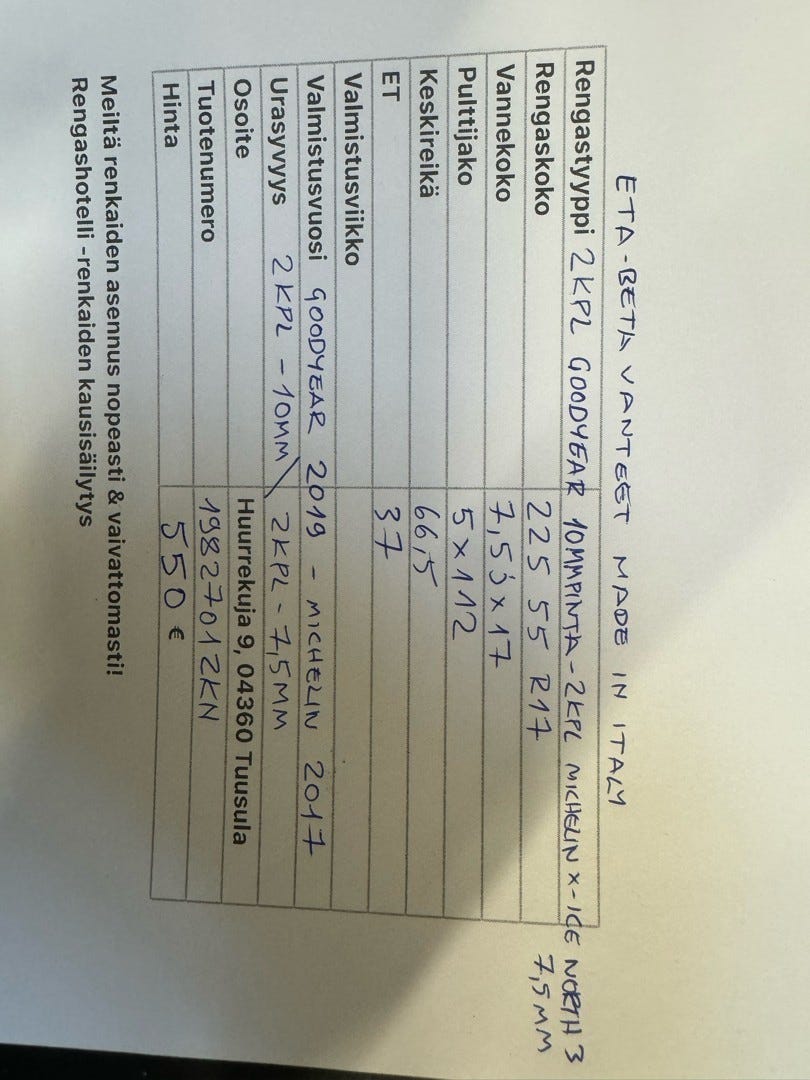 ETA-BETA VANTEET MADE IN ITALY
Rengastyyppi 2KPL GOODYEAR 10MMPINTA-2KPL MICHELIN X-ICE NORTH 3
7,5MM
Rengaskoko 225 55 R17
Vannekoko 7,5J x 17
Pulttijako 5 x 112
Keskireikä 66,5
ET 37
Valmistusviikko
Valmistusvuosi GOODYEAR 2019 - MICHELIN 2017
Urasyvyys 2KPL - 10MM / 2KPL - 7,5MM
Osoite Huurrekuja 9, 04360 Tuusula
Tuotenumero 19827012KN
Hinta 550 €
Meiltä renkaiden asennus nopeasti & vaivattomasti!
Rengashotelli -renkaiden kausisäilytys